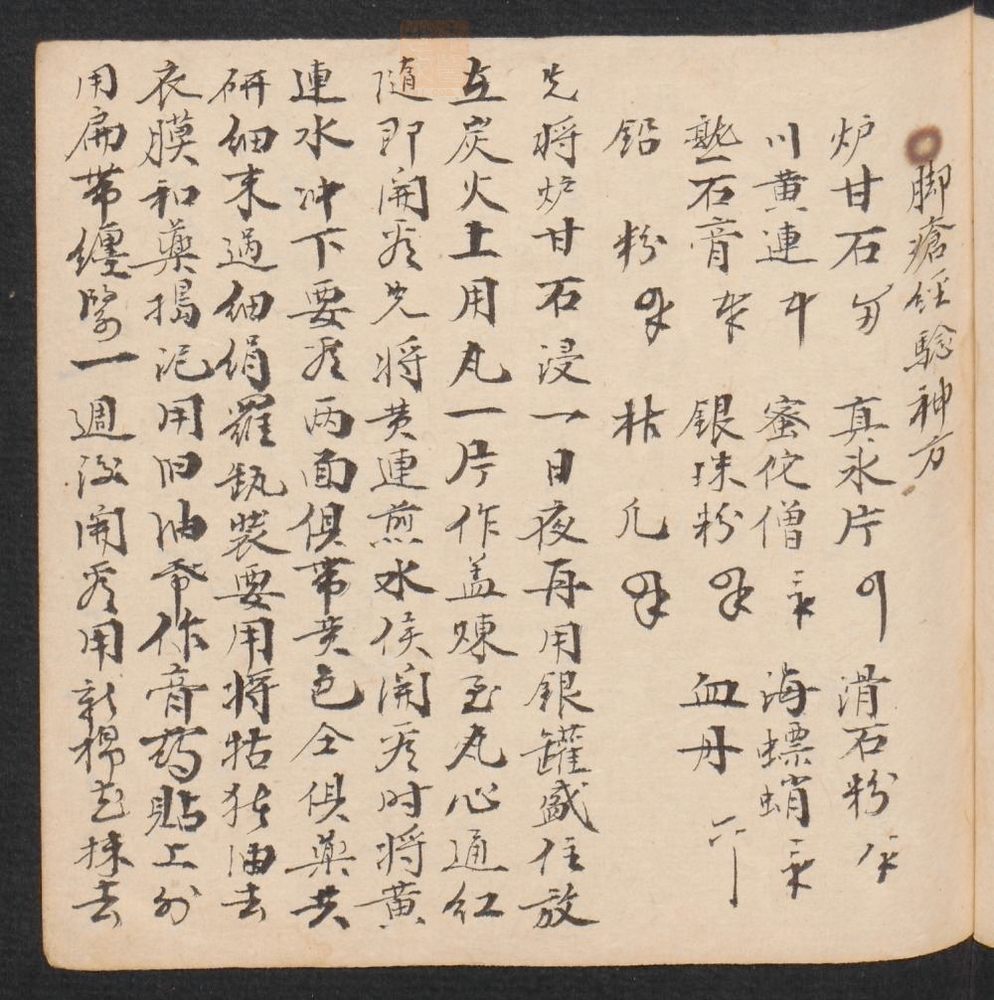 脚瘡經驗神方
炉甘石 真氷片 滑石粉
川黄連 蜜佗僧 海螵蛸
熟石膏 銀珠粉 血丹
鉛粉 枯凡
先將炉甘石浸一日夜再用銀罐盛住放
在炭火上用瓦一片作盖煉至瓦心通红
隨即開看先將黄連煎水侯開看时将黄
連水冲下要看两面俱帶黄色仝俱藥共
研細末過細绢羅瓶装要用將牯猪油去
衣膜和藥搗泥用旧油布作膏药貼上外
用扁帶纏緊一週後開看用新棉花抹去